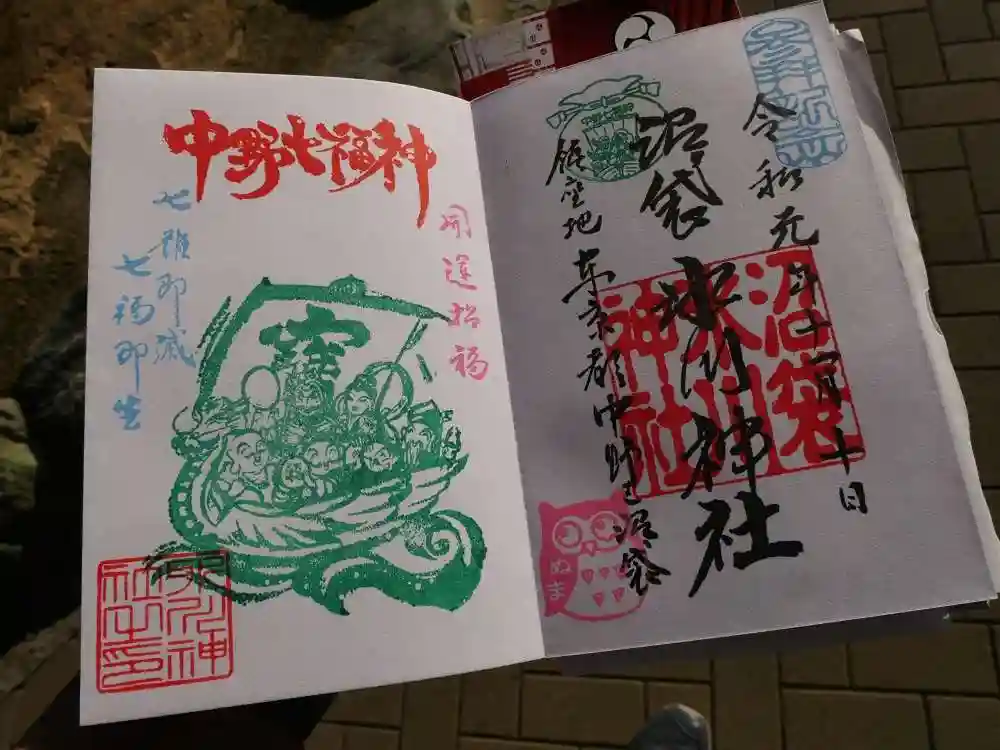 令和元年十一月十日
沼袋
氷川神社
鎮座地 東京都中野区沼袋
沼袋
氷川
神社
ぬま
中野七福神
開運招福
七難即滅
七福即生
氷川神
社之印